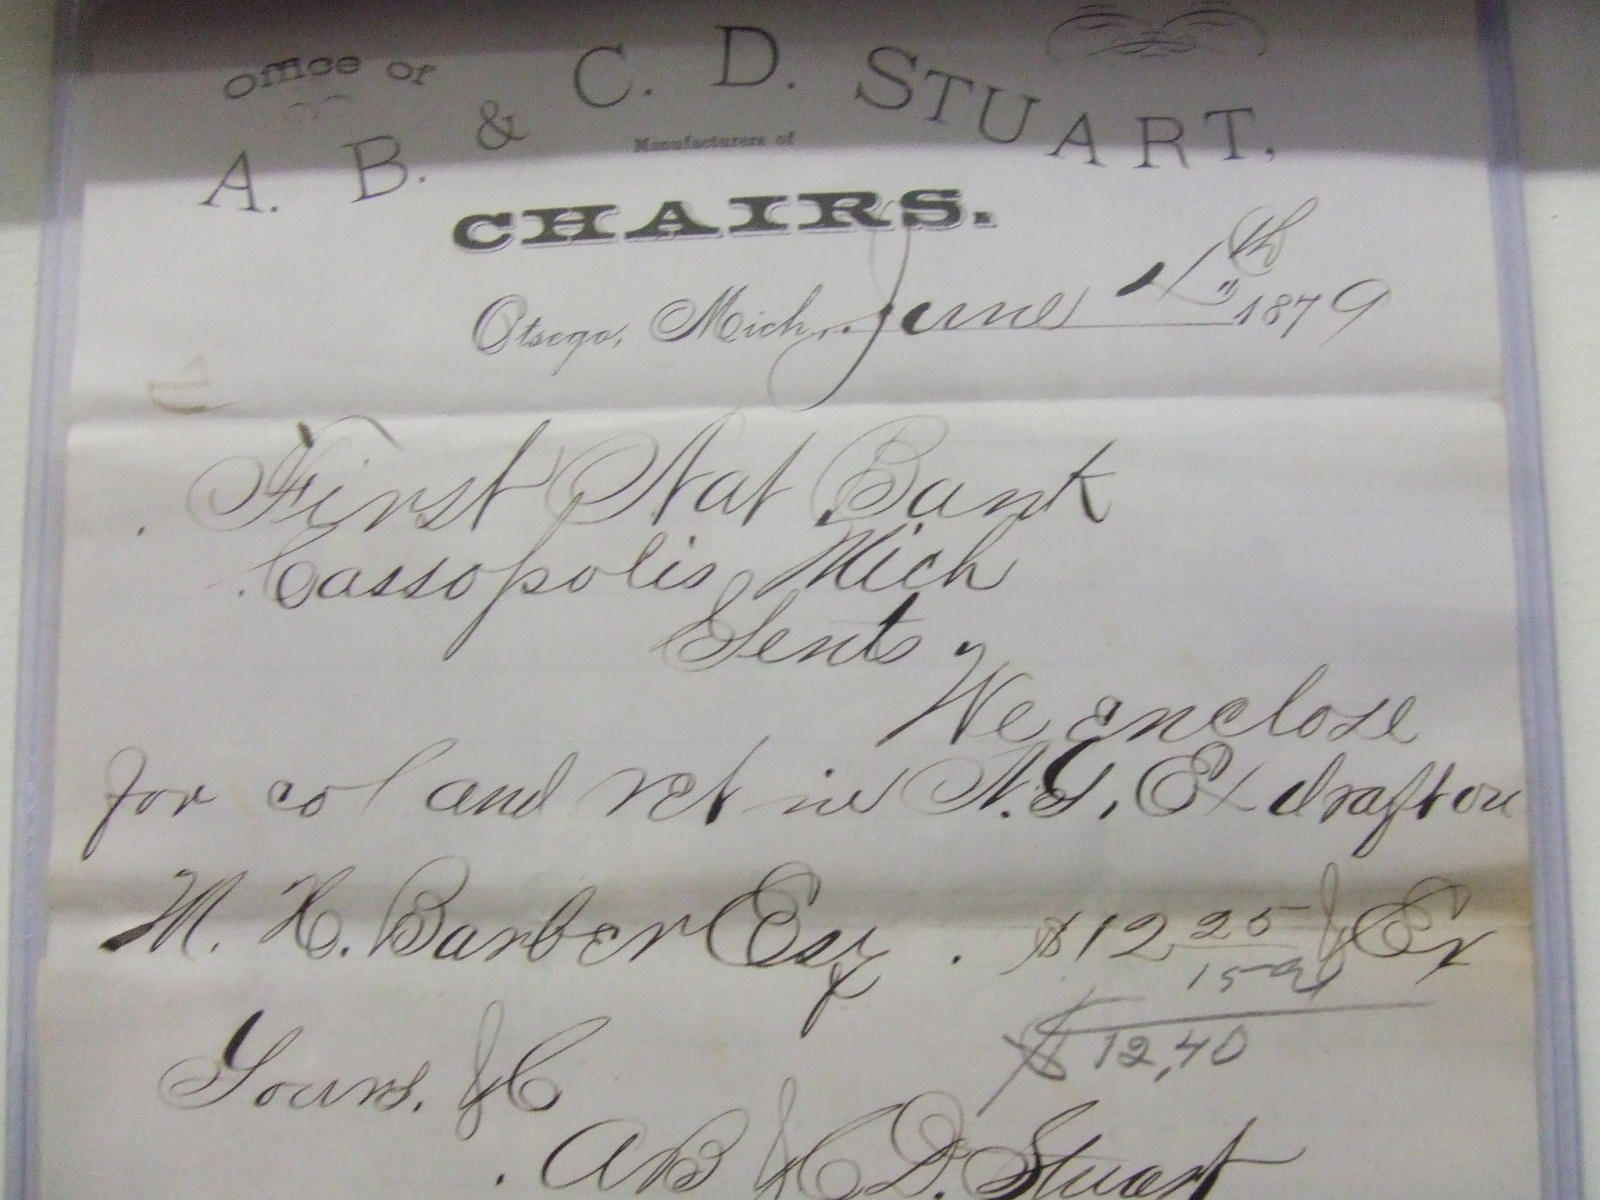 Office of
A. B. & C. D. STUART,
Manufacturers of
CHAIRS.
Otsego, Mich., June th 1879
First Nat Bank
Cassopolis, Mich
Gents.
We enclose
for col and ret in N.Y. Ex draft on
M. H. Barber Esq. $12 25 & Ex
15
$12,40
Yours, &C
AB & C D. Stuart